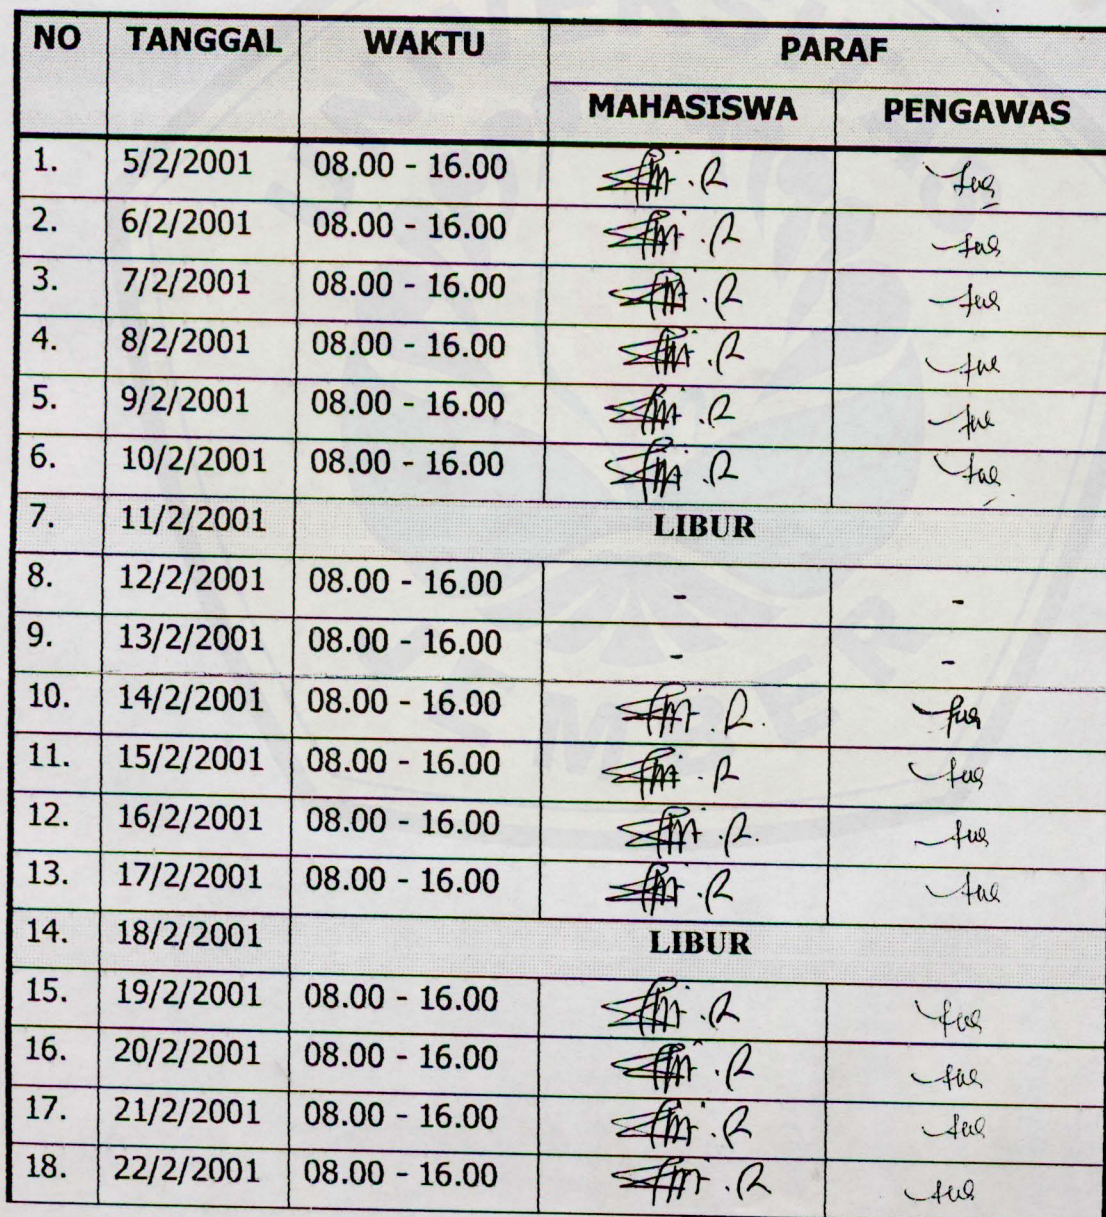 NO TANGGAL WAKTU PARAF
MAHASISWA PENGAWAS
1. 5/2/2001 08.00 - 16.00
2. 6/2/2001 08.00 - 16.00
3. 7/2/2001 08.00 - 16.00
4. 8/2/2001 08.00 - 16.00
5. 9/2/2001 08.00 - 16.00
6. 10/2/2001 08.00 - 16.00
7. 11/2/2001 LIBUR
8. 12/2/2001 08.00 - 16.00 - -
9. 13/2/2001 08.00 - 16.00 - -
10. 14/2/2001 08.00 - 16.00
11. 15/2/2001 08.00 - 16.00
12. 16/2/2001 08.00 - 16.00
13. 17/2/2001 08.00 - 16.00
14. 18/2/2001 LIBUR
15. 19/2/2001 08.00 - 16.00
16. 20/2/2001 08.00 - 16.00
17. 21/2/2001 08.00 - 16.00
18. 22/2/2001 08.00 - 16.00